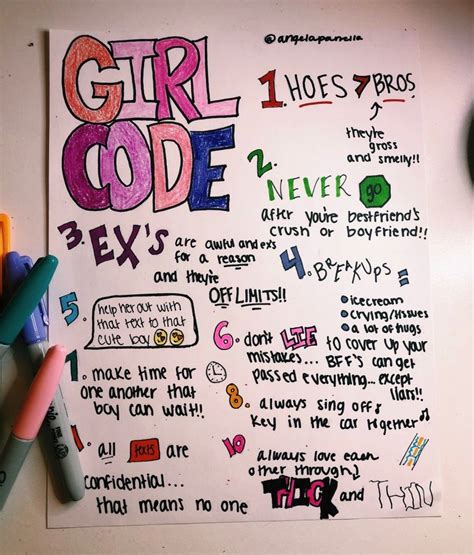 GIRL
CODE
1. HOES > BROS
they're
gross
and smelly!!
2.
NEVER go
after you're bestfriend's
crush or boyfriend!!
3. EX'S are awful and exs
for a reason
and they're
OFF LIMITS!!
4. BREAKUPS =
icecream
crying/tissues
a lot of hugs
5. help her out with
that text to that
cute boy
6. don't LIE to cover up your
mistakes... BFF's can get
passed everything... except
liars!!
7. make time for
one another that
boy can wait!!
8. always sing off
key in the car together
9. all texts are
confidential...
that means no one
10 always love each
other through
THICK and THIN